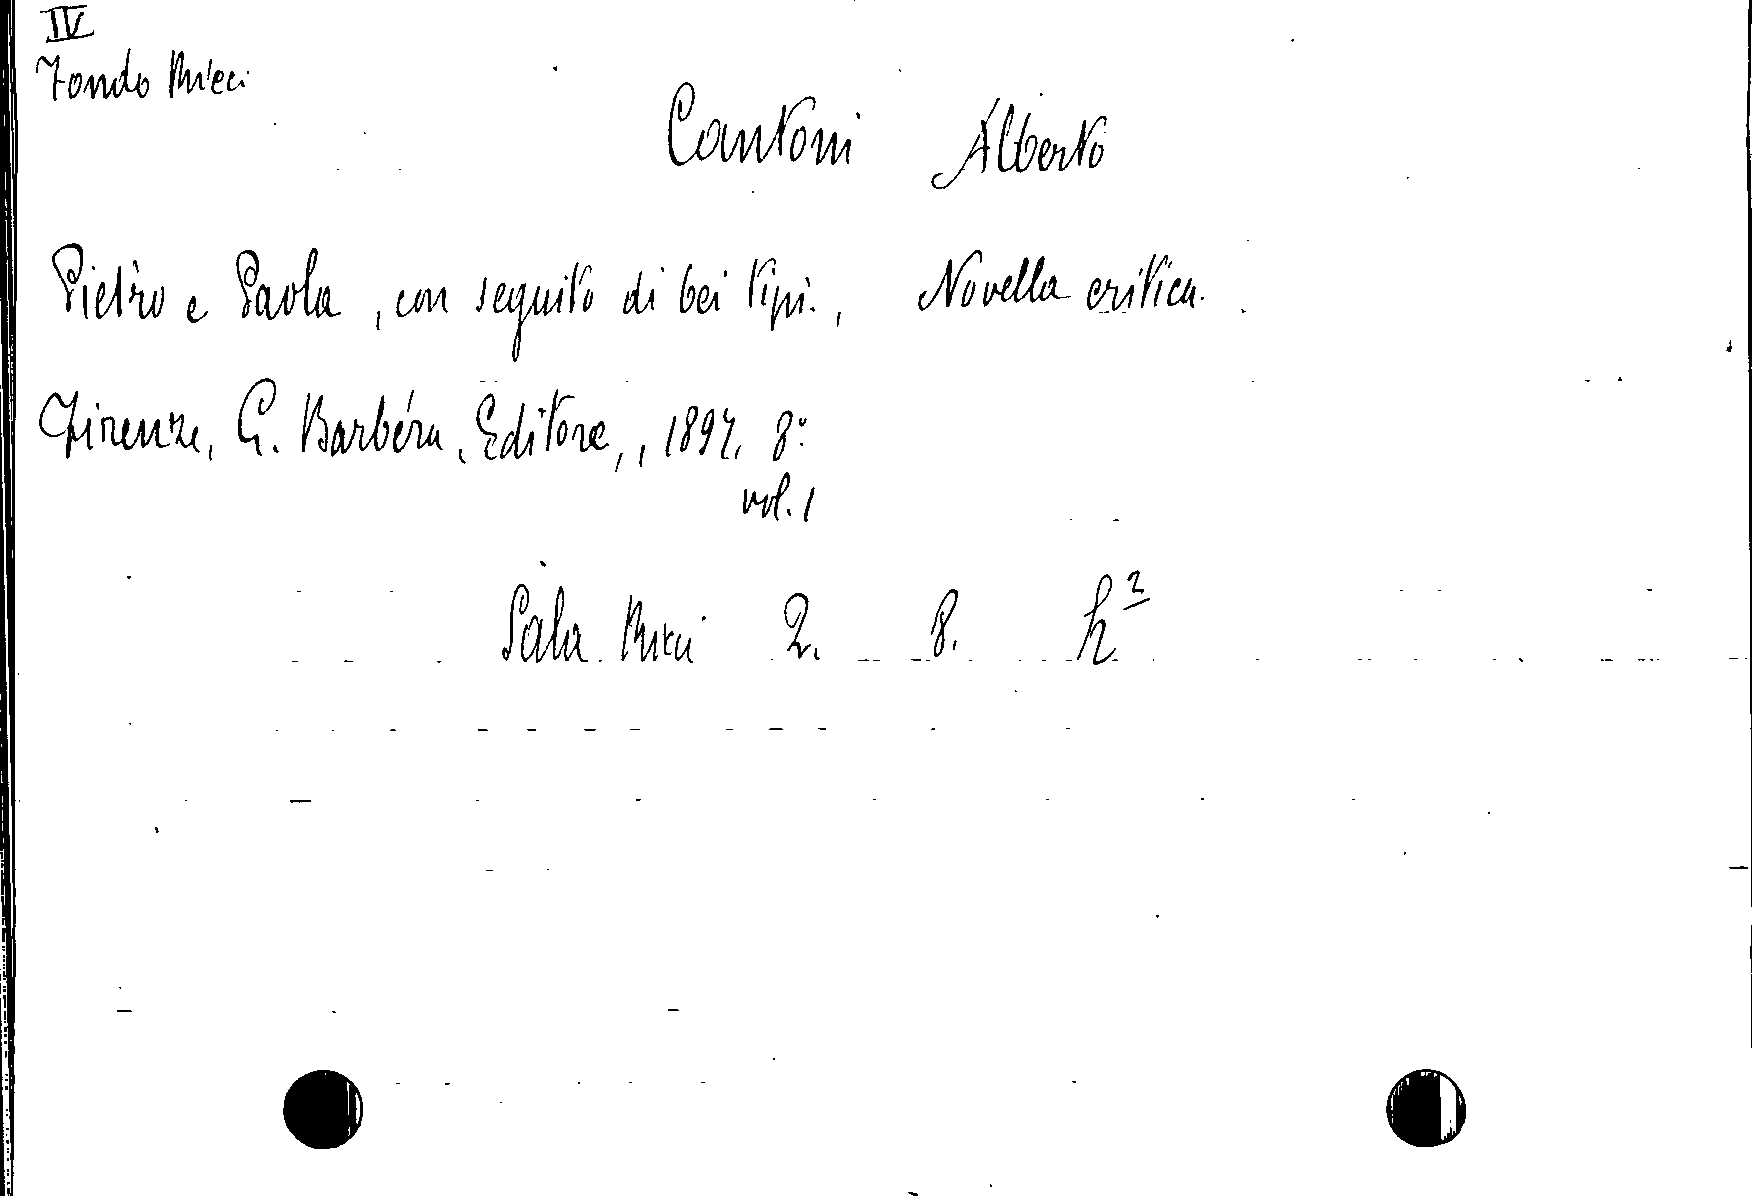 IV
Fondo Ricci
Cantoni Alberto
Pietro e Paola, con seguito di bei tipi., Novella critica.
Firenze, G. Barbéra, Editore,, 1897. 8º
vol. 1
Sala Ricci 2. 8. h²